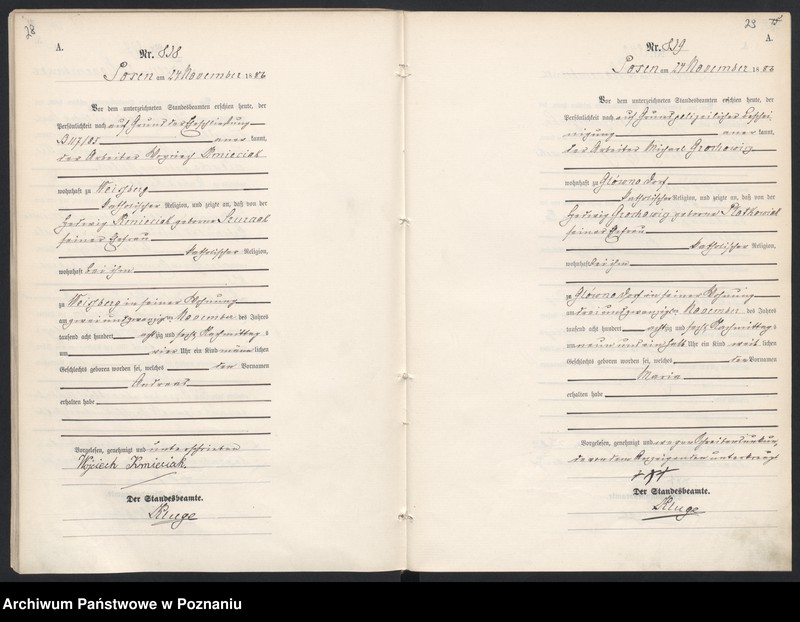 28
A.
Nr. 838
Posen am 24 November 1886
Vor dem unterzeichneten Standesbeamten erschien heute, der
Persönlichkeit nach auf Grund der Eheschließung
117/85 aner kannt,
der Arbeiter Wojciech Kmieciak
wohnhaft zu Weissberg
katholischer Religion, und zeigte an, daß von der
Hedwig Kmieciak geborene
seiner Ehefrau
katholischer Religion,
wohnhaft bei ihm
zu Weissberg in seiner Wohnung
am zwei und zwanzigsten November des Jahres
tausend acht hundert achtzig und sechs Nachmittags
um vier Uhr ein Kind männ lichen
Geschlechts geboren worden sei, welches den Vornamen
Andreas
erhalten habe
Vorgelesen, genehmigt und unterschrieben
Wojciech Kmieciak.
Der Standesbeamte.
Kluge
29
A.
Nr. 839
Posen am 24 November 1886
Vor dem unterzeichneten Standesbeamten erschien heute, der
Persönlichkeit nach auf Grund polizeilicher Beschei-
nigung aner kannt,
der Arbeiter Michael
wohnhaft zu Glówno Dorf
katholischer Religion, und zeigte an, daß von der
Hedwig geborene
seiner Ehefrau
katholischer Religion,
wohnhaft bei ihm
zu Glówno Dorf in seiner Wohnung
am drei und zwanzigsten November des Jahres
tausend acht hundert achtzig und sechs Nachmittags
um neun und einhalb Uhr ein Kind weib lichen
Geschlechts geboren worden sei, welches den Vornamen
Maria
erhalten habe
Vorgelesen, genehmigt und wegen Schreibensunkun-
de von dem Anzeigenden unterkreuzt
+++
Der Standesbeamte.
Kluge
Archiwum Państwowe w Poznaniu